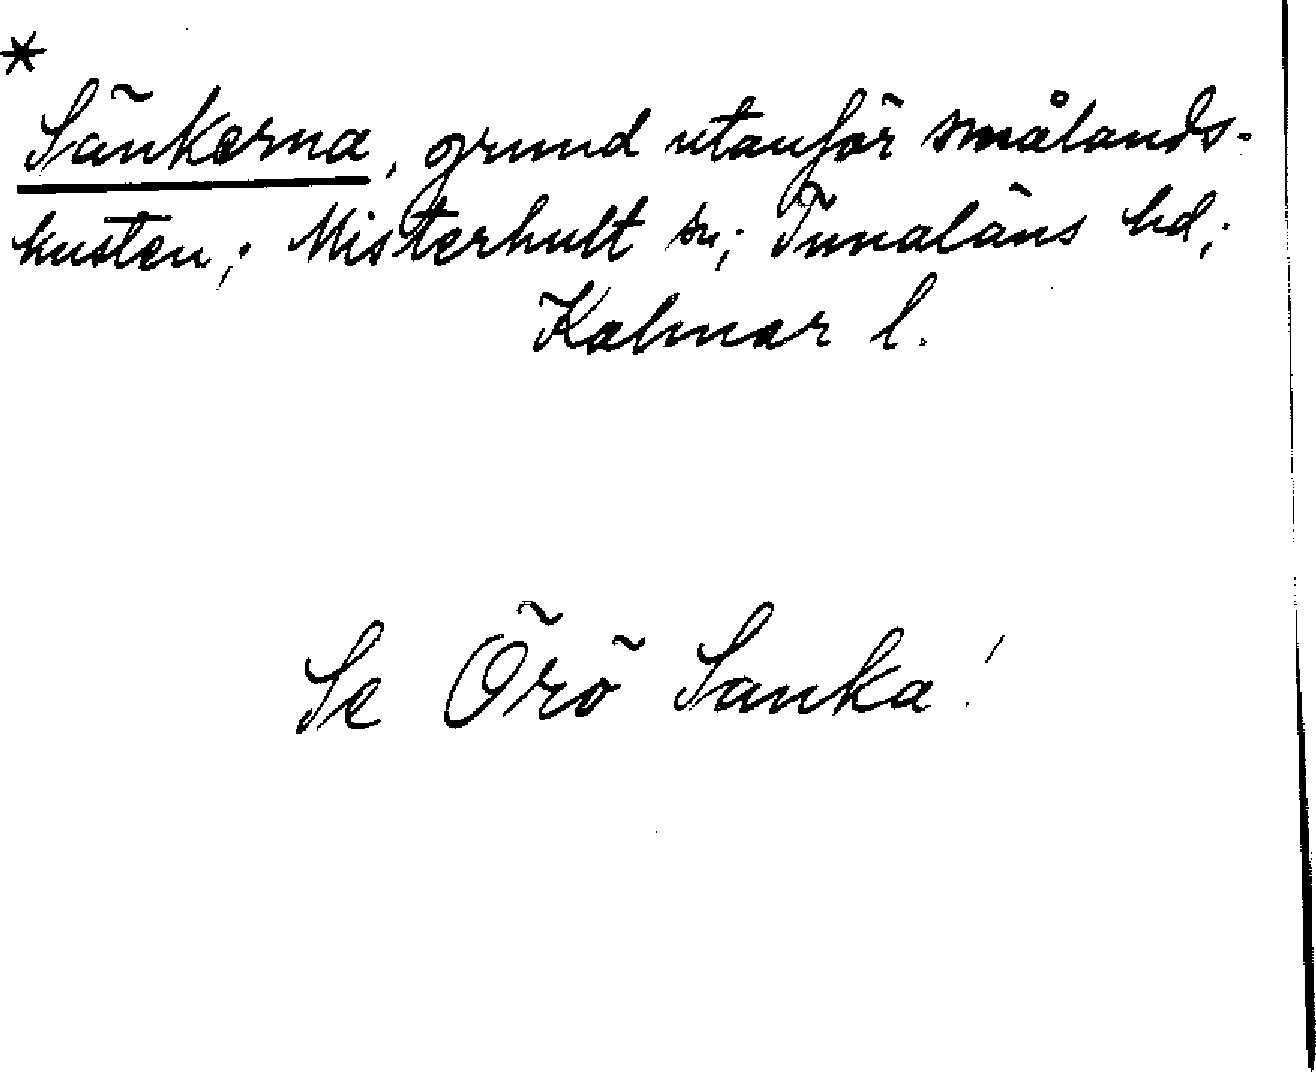 *
Sänkorna, grund utanför smålands-
kusten; Misterhult sn; Tunaläns hd;
Kalmar l.
Se Örö Sanka!